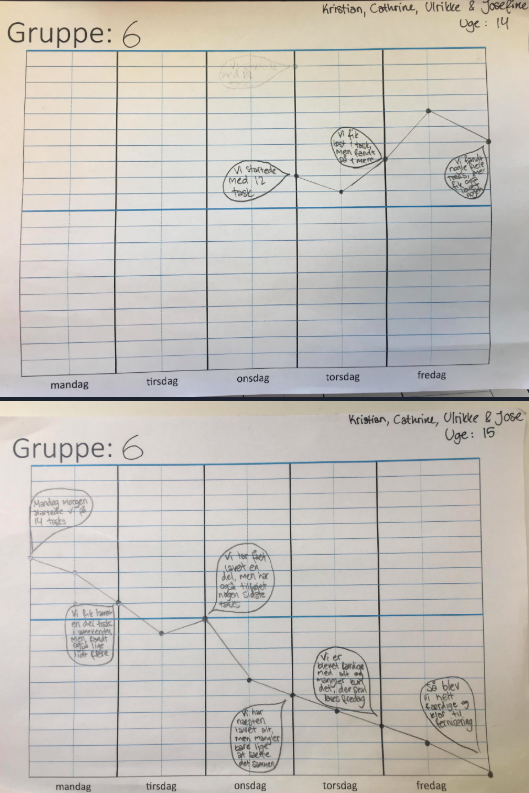 Kristian, Cathrine, Ulrikke & Josefine
Uge: 14
Gruppe: 6
Vi startede
med 12
task
Vi fik
løst 1 task,
Men fandt
så 1 mere
Vi fandt
nogle flere
mandag
tirsdag
onsdag
torsdag
fredag
Kristian, Cathrine, Ulrikke & Jose
Uge: 15
Gruppe: 6
Mandag morgen
startede vi på
14 tasks
Vi fik lavet
en del task
i weekenden,
Men fandt
også lige
lidt flere
Vi har fået
lavet en
del, men har
også tilføjet
nogen sidste
tasks
Vi har
næsten
lavet alt,
men mangler
bare lige
at sætte
det sammen
Vi er
blevet færdige
med alt og
mangler kun
det, der skal
laves fredag
Så blev
vi helt
færdige og
klar til
fernisering
mandag
tirsdag
onsdag
torsdag
fredag